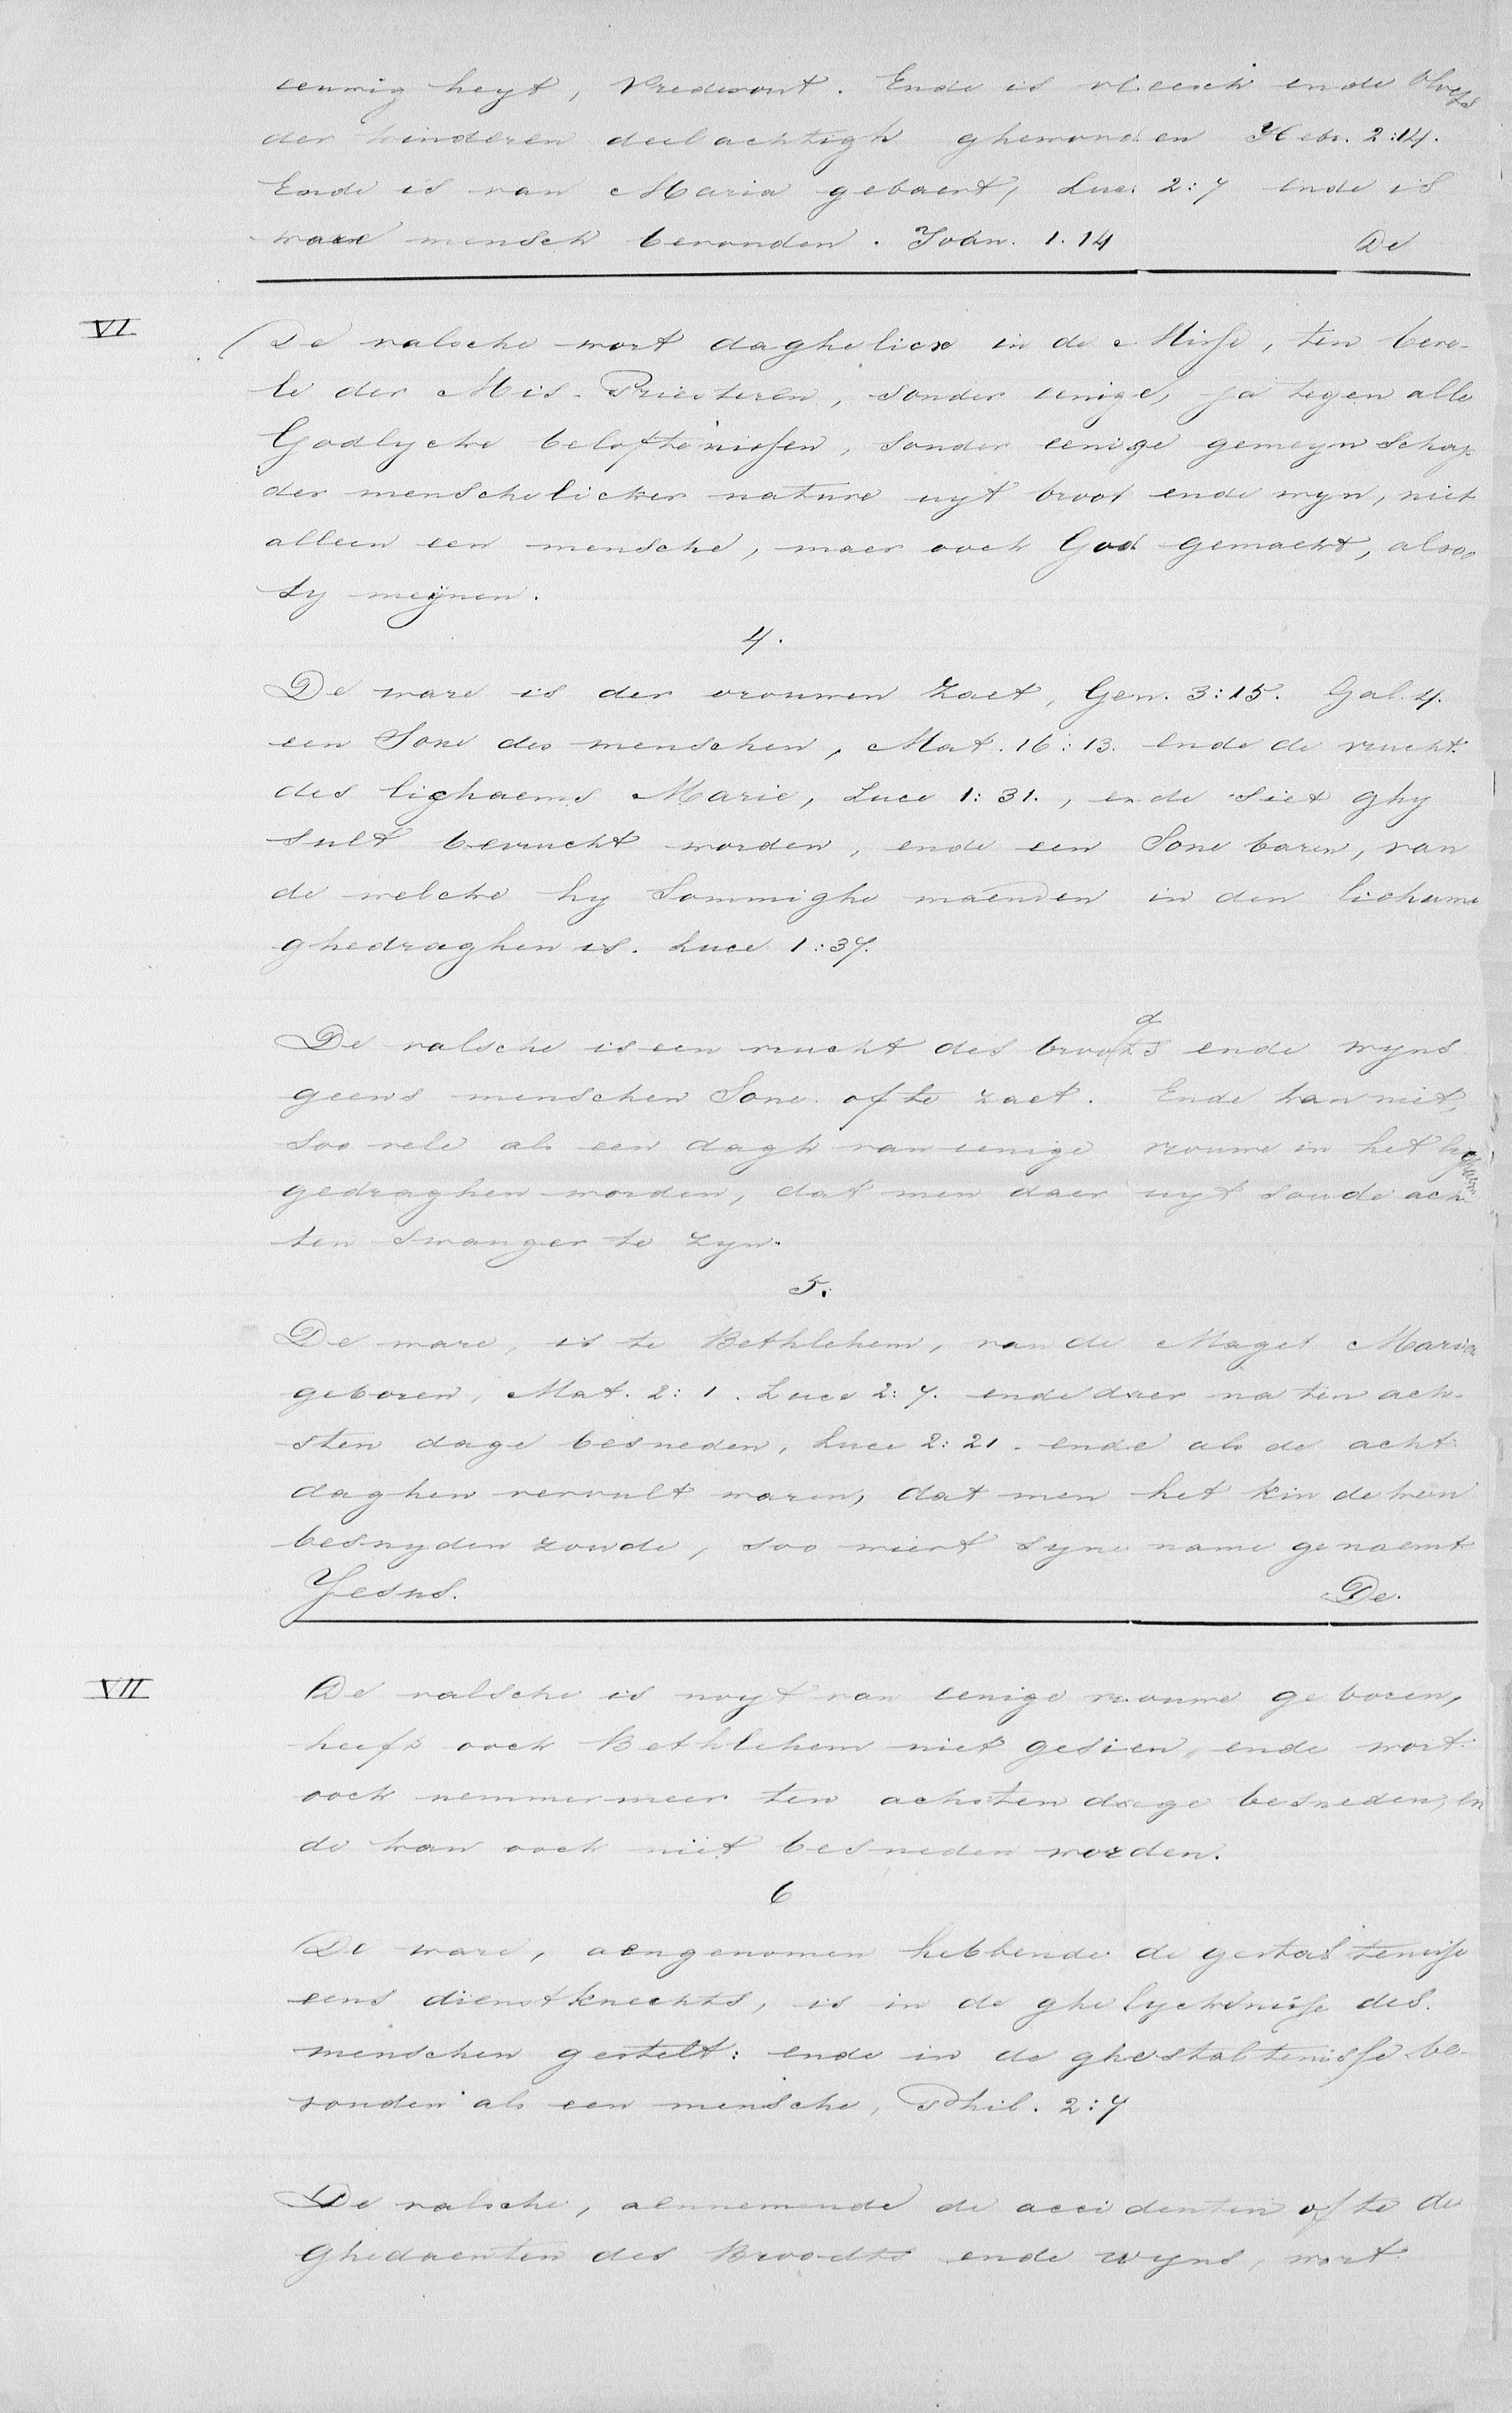 eeuwig heyt, Vredevorst. Ende is vleesch ende bloets
der kinderen deelachtigh gheworden Hebr. 2:14.
Ende is van Maria gebaert, Luc. 2:7 ende is
waer mensch bevonden. Joan. 1.14 De
VI
De valsche wort daghelicx in de Misse, ten beve-
le der Mis-Priesteren, sonder eenige, ja tegen alle
Godlycke beloftenissen, sonder eenige gemeynschap
der menschelicker nature uyt broot ende wyn, niet
alleen een mensche, maer oock God gemackt, alsoo
sy meynen.
4.
De ware is der vrouwen Zaet, Gen. 3:15. Gal. 4.
een Sone des menschen, Mat. 16:13. ende de vrucht
des lighaems Marie, Luce 1:31., ende siet ghy
sult bevrucht worden, ende een Sone baren, van
de welcke hy Sommighe maenden in den lichame
ghedraghen is. Luce 1:37.
De valsche is een vrucht des broots d ende wyns
geens menschen Sone ofte zaet. Ende kan niet,
Soo vele als een dagh van eenige vrouwe in het lyghaem
gedraghen worden, dat men daer uyt soude ach
ten Swanger te zyn.
5.
De ware, is te Bethlehem, van de Maget Maria
geboren, Mat. 2:1. Luce 2:7. ende daer na ten ach-
sten dage besneden, Luce 2:21. ende als de acht
daghen vervult waren, dat men het kindeken
besnyden zoude, soo wiert syne name genaemt
Jesus. De.
VII
De valsche is noyt van eenige vrouwe geboren,
heeft oock Bethlehem niet gesien, ende wort
oock nemmermeer ten achsten dage besneden, en
de kan oock niet besneden worden.
6
De ware, aengenomen hebbende de gestaltenisse
eens dienstknechts, is in de ghelyckenisse des
menschen gestelt: ende in de ghestaltenisse be-
vonden als een mensche, Phil. 2:7
De valsche, aennemende de accidenten ofte de
Ghedaenten des Broodts ende wyns, wort